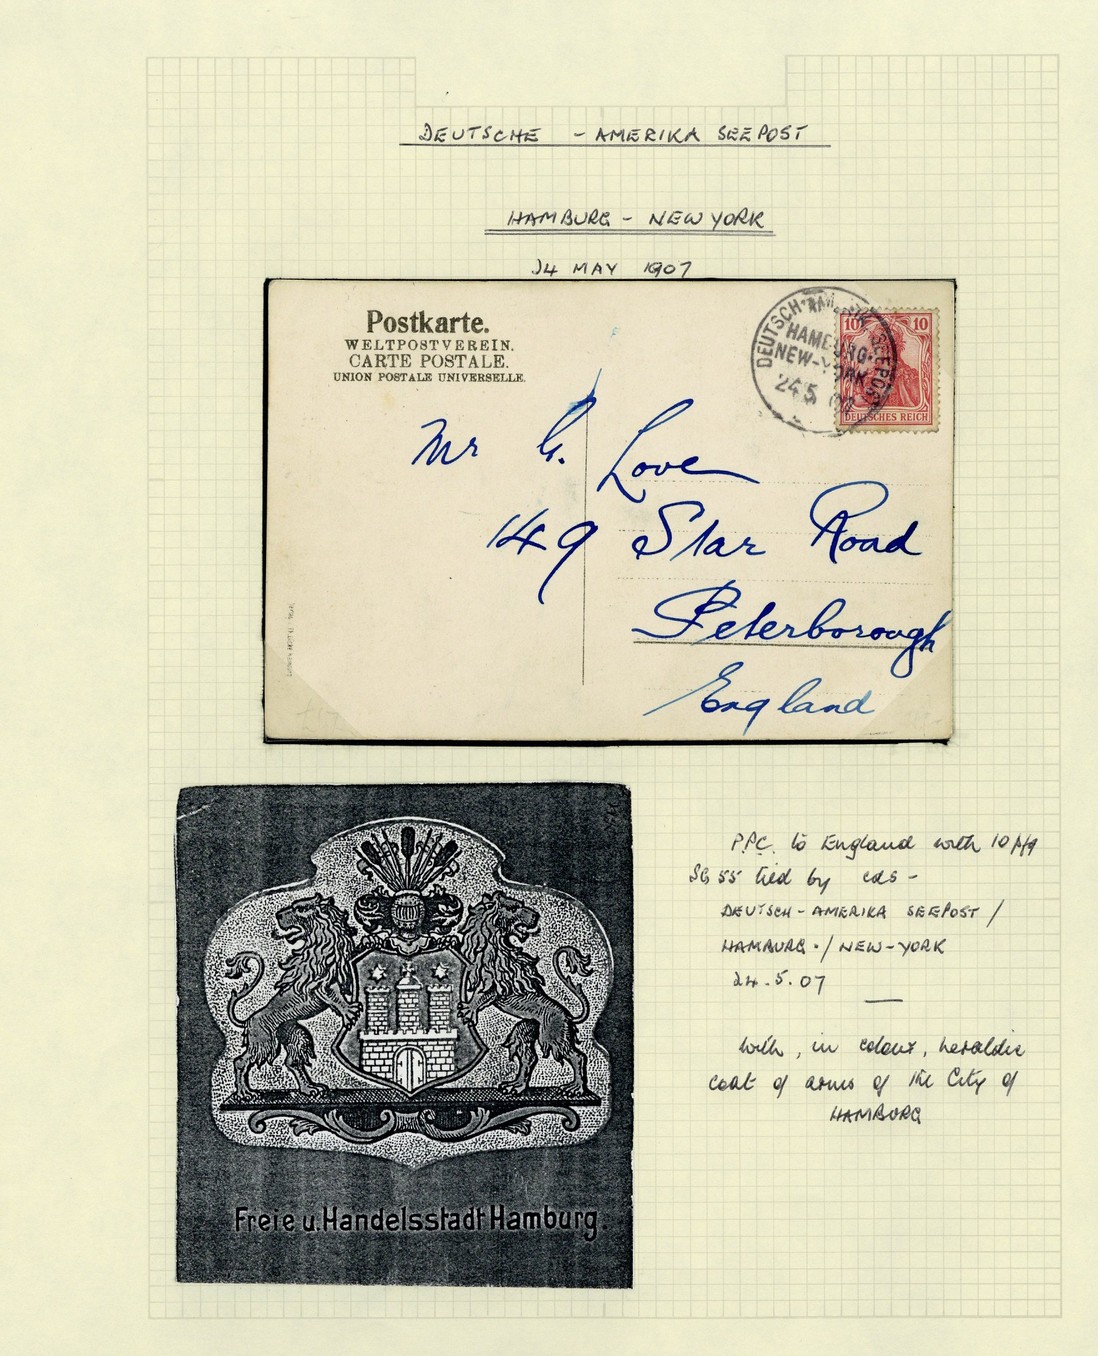 DEUTSCHE - AMERIKA SEEPOST
HAMBURG - NEW YORK
24 MAY 1907
Postkarte.
WELTPOSTVEREIN.
CARTE POSTALE.
UNION POSTALE UNIVERSELLE.
DEUTSCH-AMERIK. SEEPOST
HAMBURG-
NEW-YORK
24 5 07
10 10
DEUTSCHES REICH
Mr G. Love
149 Star Road
Peterborough
England
P.P.C. to England with 10 pfg
SG 55 tied by cds -
DEUTSCH - AMERIKA SEEPOST /
HAMBURG · / NEW - YORK
24 . 5 . 07
with, in colour, heraldic
coat of arms of the City of
HAMBURG
Freie u. Handelsstadt Hamburg.